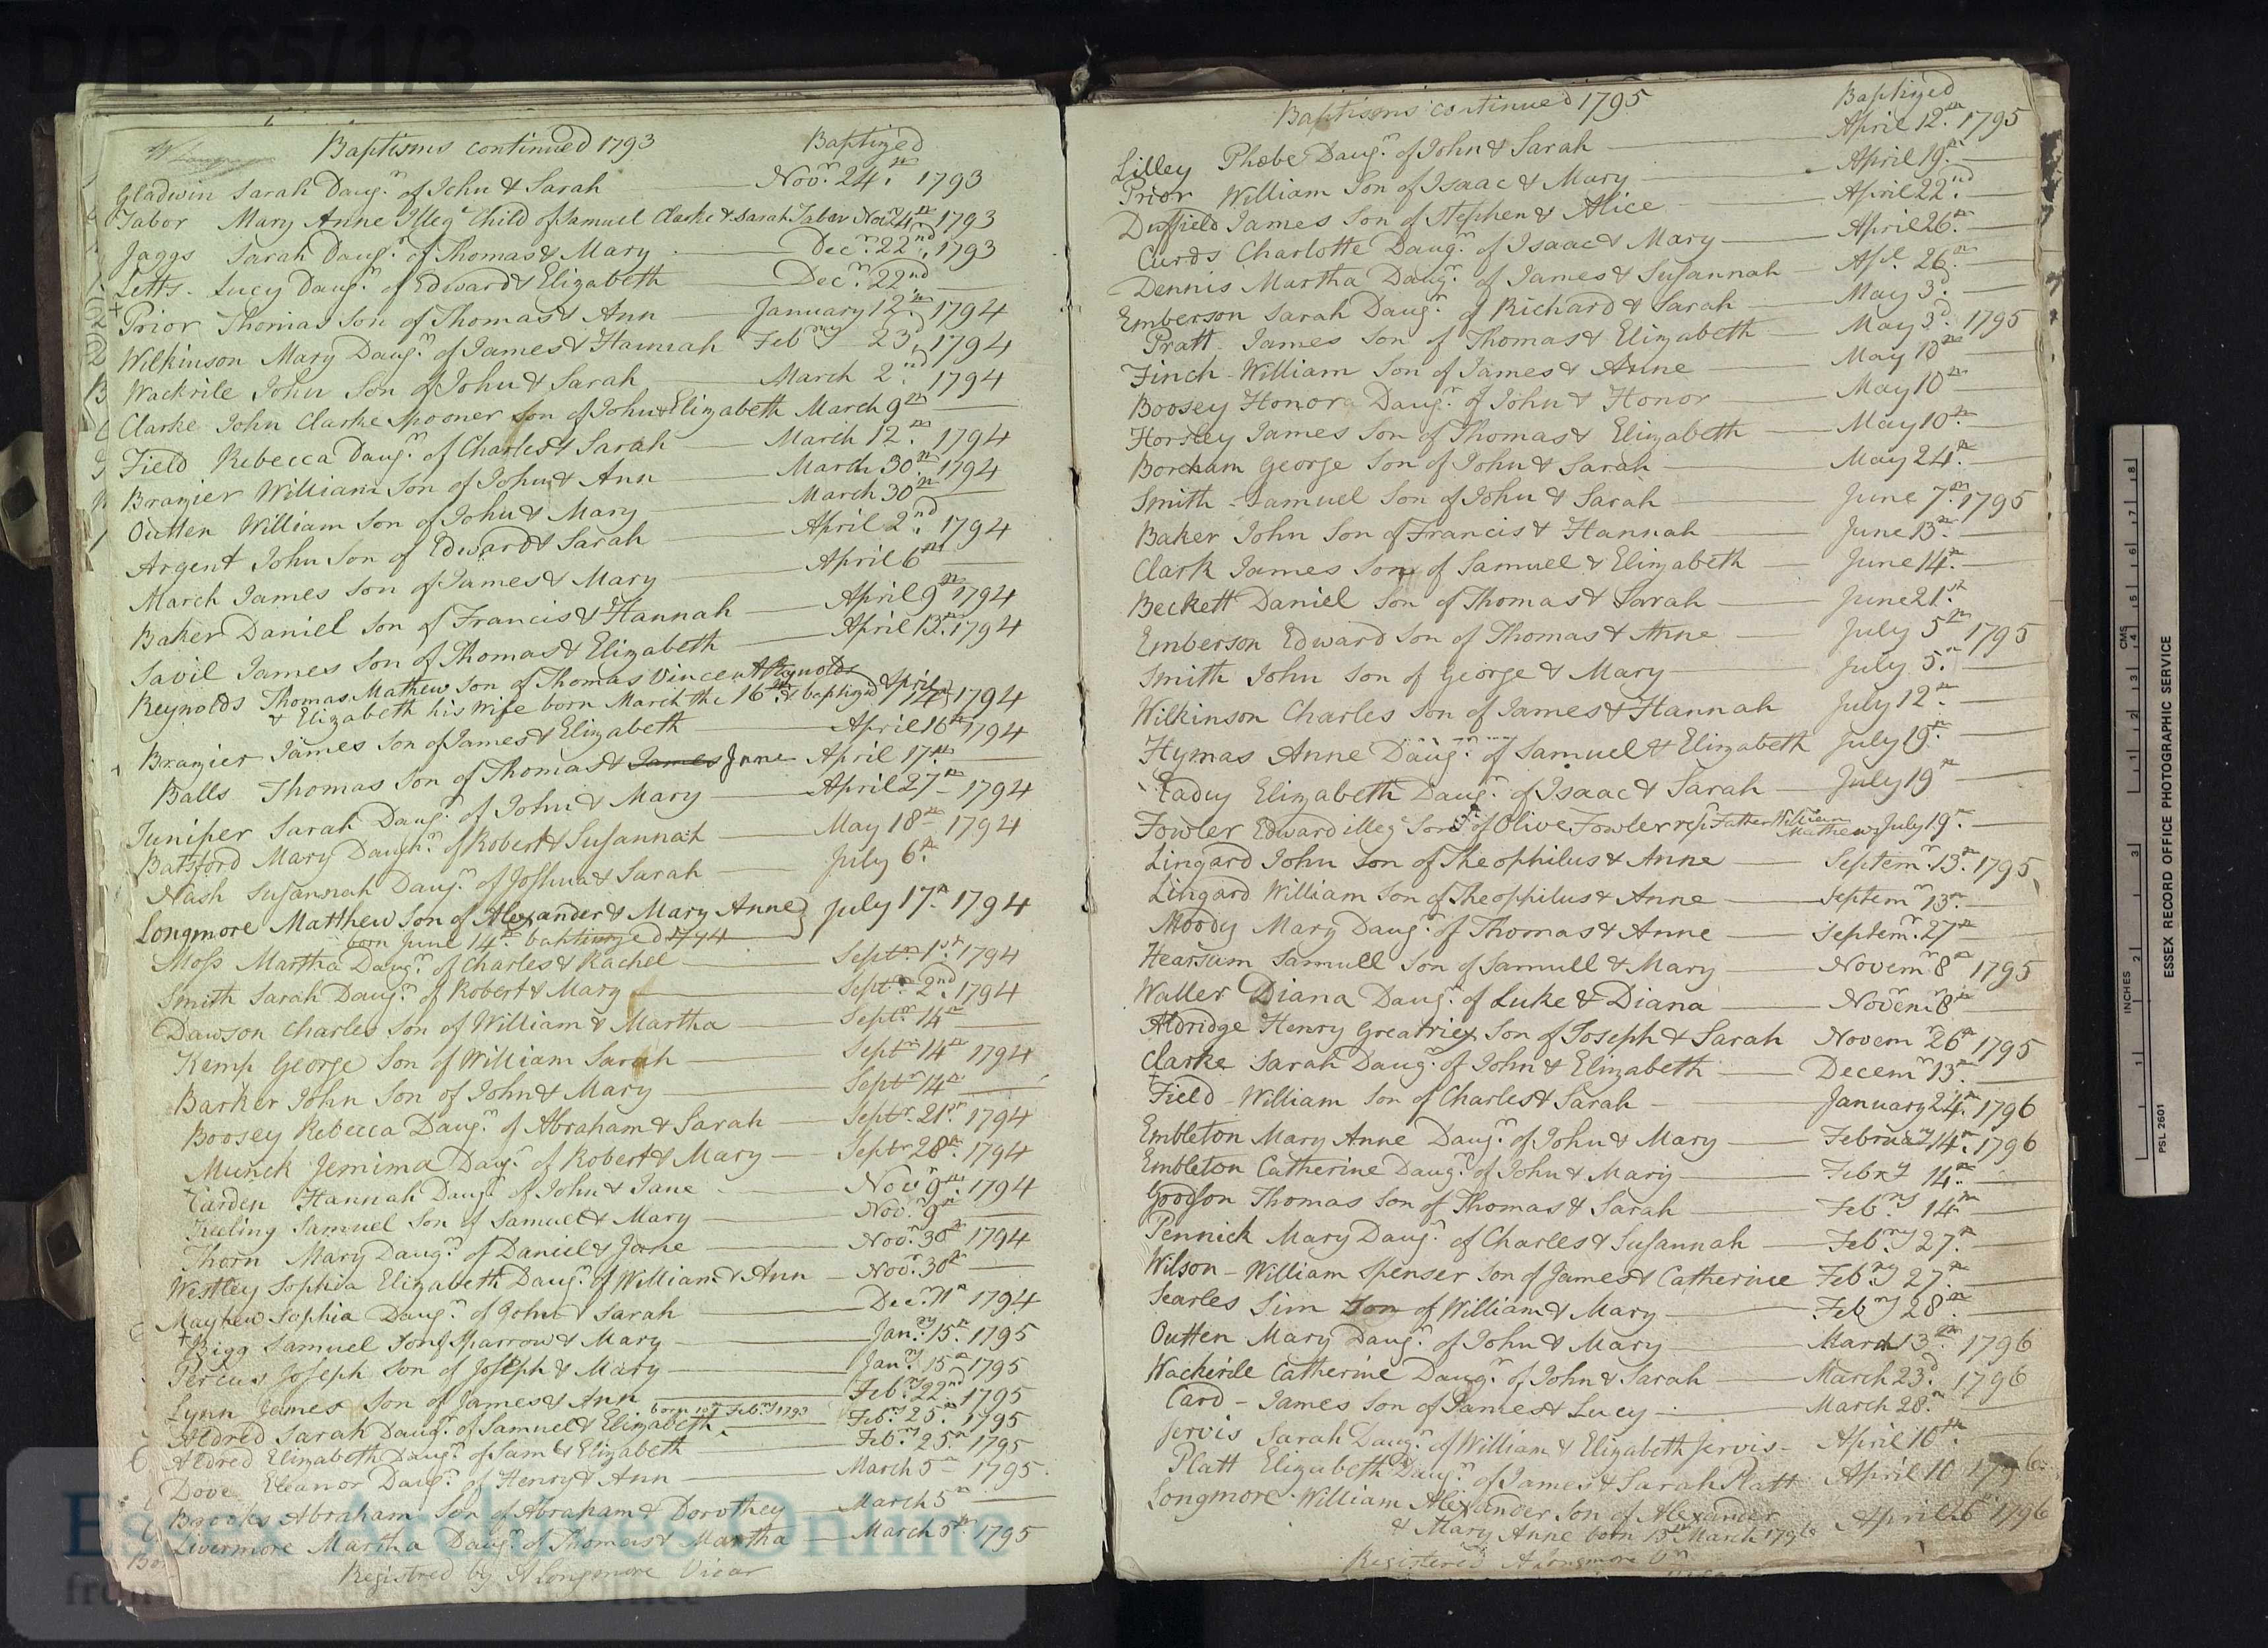 D/P 65/1/3
Baptisms continued 1793 Baptized
Gladwin Sarah Daugr. of John & Sarah Novr. 24th. 1793
Tabor Mary Anne Illeg. Child of Samuel Clarke & Sarah Tabor Novr 24th 1793
Jaggs Sarah Daugr. of Thomas & Mary Decr. 22nd, 1793
Letts - Lucy Daugr. of Edward & Elizabeth Decr. 22nd
Prior Thomas Son of Thomas & Ann January 12th 1794
Wilkinson Mary Daugr. of James & Hannah Feb 23d, 1794
Wackrile John Son of John & Sarah March 2nd. 1794
Clarke John Clarke Spooner Son of John & Elizabeth March 9th
Field Rebecca Daugr. of Charles & Sarah March 12th. 1794
Brazier William Son of John & Ann March 30th. 1794
Outten William Son of John & Mary March 30th
Argent John Son of Edward & Sarah April 2nd. 1794
March James Son of James & Mary April 6th
Baker Daniel Son of Francis & Hannah April 9th 1794
Savil James Son of Thomas & Elizabeth April 13th. 1794
Reynolds Thomas Mathew Son of Thomas Vincent Reynolds
& Elizabeth his Wife born March the 16th & baptized April 17th 1794
Brazier James Son of James & Elizabeth April 16th 1794
Balls Thomas Son of Thomas & James Jane April 17th
Juniper Sarah Daugr. of John & Mary April 27th 1794
Batsford Mary Daughr. of Robert & Susannah May 18th 1794
Nash Susannah Daugr. of Joshua & Sarah July 6th
Longmore Matthew Son of Alexander & Mary Anne July 17th 1794
born June 14th baptized 1794
Moss Martha Daugr. of Charles & Rachel Septr 1st. 1794
Smith Sarah Daugr. of Robert & Mary Septr 2nd. 1794
Dawson Charles Son of William & Martha Septr 14th
Kemp George Son of William Sarah Septr 14th 1794
Barker John Son of John & Mary Septr 14th
Boosey Rebecca Daugr. of Abraham & Sarah Septr. 21st 1794
Munck Jemima Daugr. of Robert & Mary Septr 28th. 1794
Carden Hannah Daugr. of John & Jane Novr 9th. 1794
Keeling Samuel Son of Samuel & Mary Novr. 9th
Thorn Mary Daugr. of Daniel & Jane Novr. 30th 1794
Westley Sophia Elizabeth Daugr. of William & Ann Novr. 30th
Mayhew Sophia Daugr. of John & Sarah Decr. 11th 1794
Bigg Samuel Son of Sparrow & Mary Janry. 15th. 1795
Percus Joseph Son of Joseph & Mary Janry. 15th 1795
Lynn James Son of James & Ann Febry. 22nd 1795
Aldred Sarah Daugr. of Samuel & Elizabeth born Febry 1793 Febry. 25th. 1795
Aldred Elizabeth Daugr. of Saml & Elizabeth Febry. 25th 1795
Dove Eleanor Daugr. of Henry & Ann March 5th 1795
Brooks Abraham Son of Abraham & Dorothey March 5th
Livermore Martha Daugr. of Thomas & Martha March 5th. 1795
Registred by A Longmore Vicar
Baptisms continued 1795 Baptized
Lilley Phœbe Daugr. of John & Sarah April 12th. 1795
Prior William Son of Isaac & Mary April 19th.
Duffield James Son of Stephen & Alice April 22nd.
Curds Charlotte Daugr. of Isaac & Mary April 26th.
Dennis Martha Daugr. of James & Susannah Apl. 26th.
Emberson Sarah Daugr. of Richard & Sarah May 3d.
Pratt James Son of Thomas & Elizabeth May 3d. 1795
Finch William Son of James & Anne May 10th
Boosey Honora Daugr. of John & Honor May 10th
Horsley James Son of Thomas & Elizabeth May 10th.
Boreham George Son of John & Sarah May 24th.
Smith Samuel Son of John & Sarah June 7th. 1795
Baker John Son of Francis & Hannah June 13th.
Clark James Son of Samuel & Elizabeth June 14th.
Beckett Daniel Son of Thomas & Sarah June 21st
Emberson Edward Son of Thomas & Anne July 5th 1795
Smith John Son of George & Mary July 5th.
Wilkinson Charles Son of James & Hannah July 12th.
Hymas Anne Daugr. of Samuel & Elizabeth July 19th.
Eadey Elizabeth Daugr. of Isaac & Sarah July 19th
Fowler Edward illeg. Son of Olive Fowler Father William Mathews July 19th.
Lingard John Son of Theophilus & Anne Septemr. 13th. 1795
Lingard William Son of Theophilus & Anne Septemr 13th.
Moody Mary Daugr. of Thomas & Anne Septemr. 27th
Hearsum Samuell Son of Samuell & Mary Novemr 8th 1795
Waller Diana Daugr. of Luke & Diana Novemr 8th
Aldridge Henry Greatriex Son of Joseph & Sarah Novemr 26th 1795
Clarke Sarah Daugr. of John & Elizabeth Decemr 13th.
Field William Son of Charles & Sarah January 24th. 1796
Embleton Mary Anne Daugr. of John & Mary February 14th. 1796
Embleton Catherine Daugr. of John & Mary Febry 14th.
Goodson Thomas Son of Thomas & Sarah Febry 14th
Pennick Mary Daugr. of Charles & Susannah Febry 27th.
Wilson - William Spenser Son of James & Catherine Febry 27th.
Searles Sim Son of William & Mary Febry 28th
Outten Mary Daugr. of John & Mary March 13th 1796
Wackerile Catherine Daugr. of John & Sarah March 23d. 1796
Card - James Son of James & Lucy March 28th
Jervis Sarah Daugr. of William & Elizabeth Jervis - April 10th.
Platt Elizabeth Daugr. of James & Sarah Platt April 10 1796
Longmore William Alexander Son of Alexander
& Mary Anne born 15th March 1796 April 26th 1796
Registered A Longmore Vr
Essex Archives Online
from the Essex Record Office
INCHES 1 2 3
CMS 1 2 3 4 5 6 7 8
PSL 2601
ESSEX RECORD OFFICE PHOTOGRAPHIC SERVICE